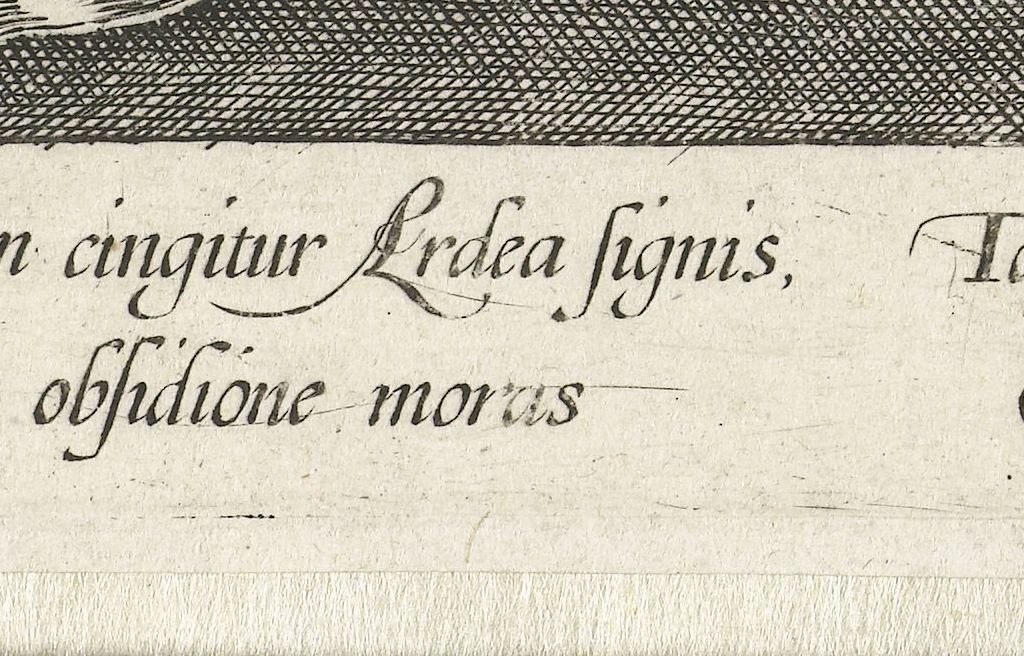 n cingitur Ardea ſignis,
obſidione moras